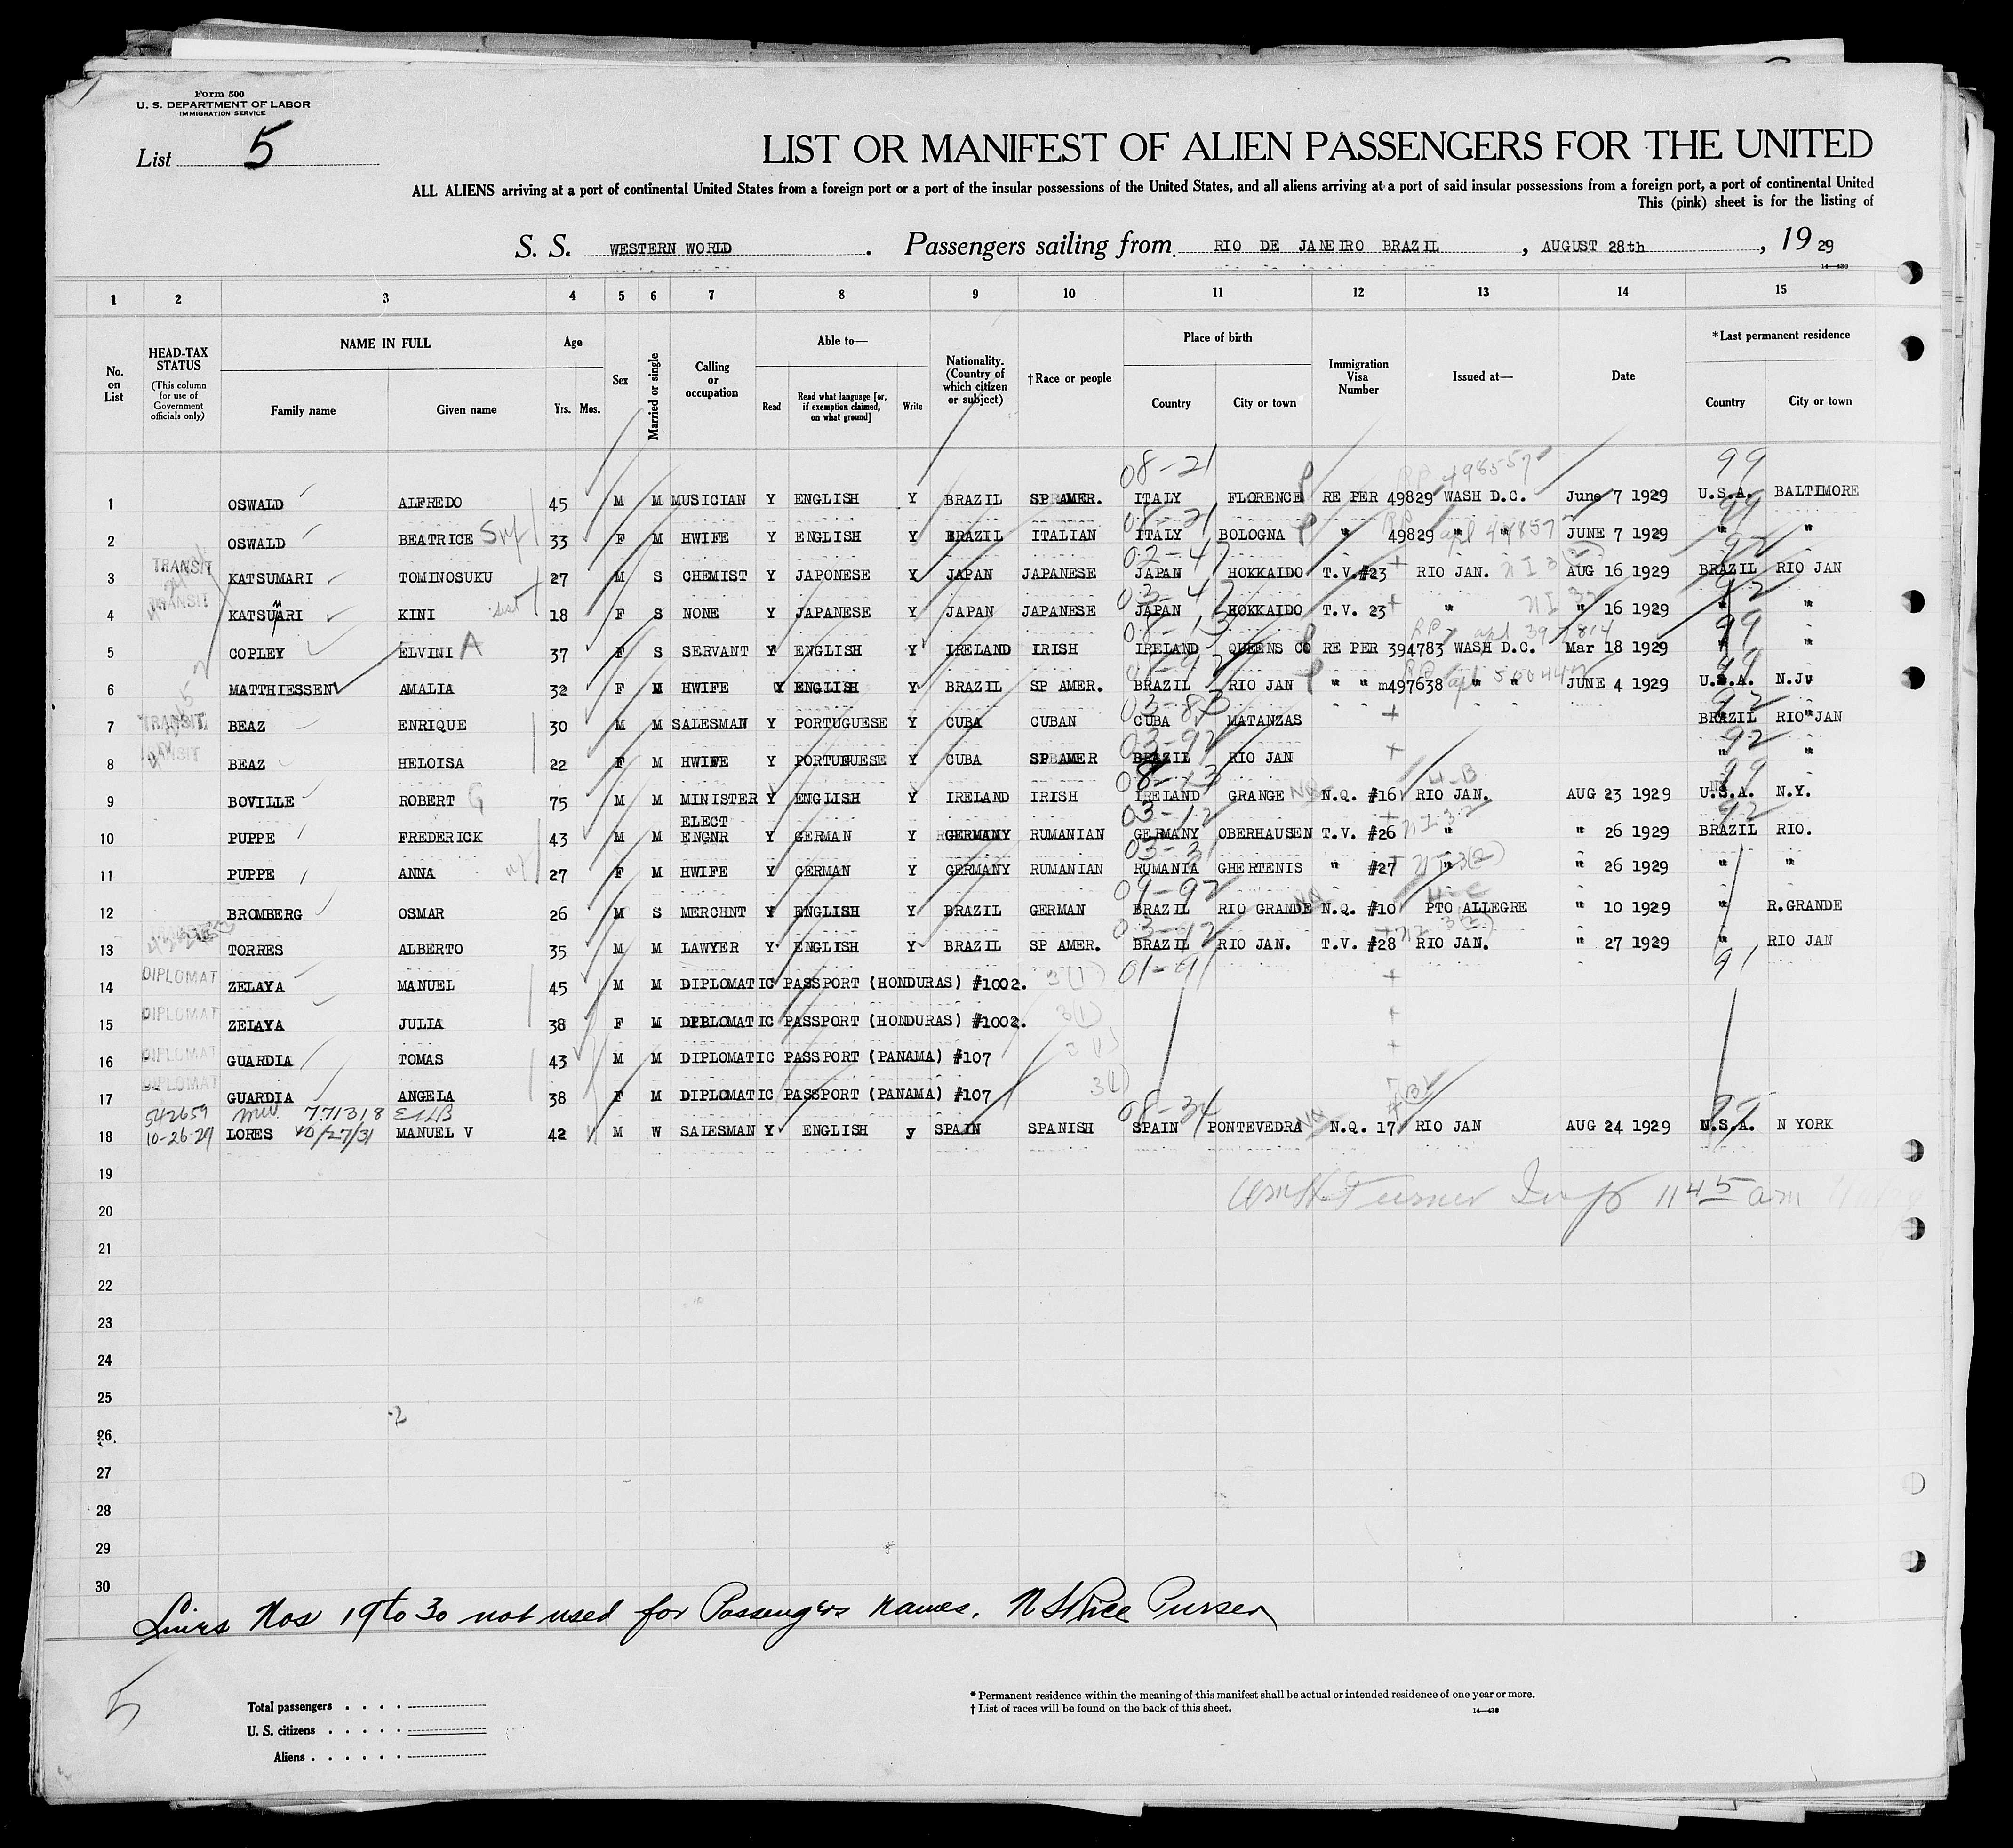 Form 500
U. S. DEPARTMENT OF LABOR
IMMIGRATION SERVICE
List 5
LIST OR MANIFEST OF ALIEN PASSENGERS FOR THE UNITED
ALL ALIENS arriving at a port of continental United States from a foreign port or a port of the insular possessions of the United States, and all aliens arriving at a port of said insular possessions from a foreign port, a port of continental United
This (pink) sheet is for the listing of
S. S. WESTERN WORLD . Passengers sailing from RIO DE JANEIRO BRAZIL , AUGUST 28th , 19 29
14—430
1 2 3 4 5 6 7 8 9 10 11 12 13 14 15
No. on List
HEAD-TAX STATUS (This column for use of Government officials only)
NAME IN FULL
Family name
Given name
Age
Yrs. Mos.
Sex
Married or single
Calling or occupation
Able to—
Read
Read what language [or, if exemption claimed, on what ground]
Write
Nationality. (Country of which citizen or subject)
†Race or people
Place of birth
Country
City or town
Immigration Visa Number
Issued at—
Date
*Last permanent residence
Country
City or town
08-21 99
1 OSWALD ALFREDO 45 M M MUSICIAN Y ENGLISH Y BRAZIL SP AMER. ITALY FLORENCE RE PER 49829 WASH D.C. June 7 1929 U.S.A. BALTIMORE
08-21 99
2 OSWALD BEATRICE 33 F M HWIFE Y ENGLISH Y BRAZIL ITALIAN ITALY BOLOGNA " 49829 " " JUNE 7 1929 " "
TRANSIT 02-47 92
3 KATSUMARI TOMINOSUKU 27 M S CHEMIST Y JAPONESE Y JAPAN JAPANESE JAPAN HOKKAIDO T.V.#23 RIO JAN. AUG 16 1929 BRAZIL RIO JAN
TRANSIT 03-47 92
4 KATSUARI KINI 18 F S NONE Y JAPANESE Y JAPAN JAPANESE JAPAN HOKKAIDO T.V. 23 " " 16 1929 " "
08-13 99
5 COPLEY ELVINI A 37 F S SERVANT Y ENGLISH Y IRELAND IRISH IRELAND QUEENS CO RE PER 394783 WASH D.C. Mar 18 1929 " "
99
6 MATTHIESSEN AMALIA 32 F M HWIFE Y ENGLISH Y BRAZIL SP AMER. BRAZIL RIO JAN " " m497638 " " JUNE 4 1929 U.S.A. N.J.
TRANSIT 03-83 92
7 BEAZ ENRIQUE 30 M M SALESMAN Y PORTUGUESE Y CUBA CUBAN CUBA MATANZAS BRAZIL RIO JAN
TRANSIT 03-92 92
8 BEAZ HELOISA 22 F M HWIFE Y PORTUGUESE Y CUBA SP AMER BRAZIL RIO JAN " "
08-13 4-B 99
9 BOVILLE ROBERT G 75 M M MINISTER Y ENGLISH Y IRELAND IRISH IRELAND GRANGE N.Q. #16 RIO JAN. AUG 23 1929 U.S.A. N.Y.
03-12 92
10 PUPPE FREDERICK 43 M M ELECT ENGNR Y GERMAN Y GERMANY RUMANIAN GERMANY OBERHAUSEN T.V. #26 " " 26 1929 BRAZIL RIO.
03-31
11 PUPPE ANNA 27 F M HWIFE Y GERMAN Y GERMANY RUMANIAN RUMANIA GHERTENIS " #27 " " 26 1929 " "
09-92
12 BROMBERG OSMAR 26 M S MERCHNT Y ENGLISH Y BRAZIL GERMAN BRAZIL RIO GRANDE N.Q. #10 PTO ALLEGRE " 10 1929 " R.GRANDE
03-92
13 TORRES ALBERTO 35 M M LAWYER Y ENGLISH Y BRAZIL SP AMER. BRAZIL RIO JAN. T.V. #28 RIO JAN. " 27 1929 " RIO JAN
DIPLOMAT 01-91 91
14 ZELAYA MANUEL 45 M M DIPLOMATIC PASSPORT (HONDURAS) #1002. 3(1)
DIPLOMAT
15 ZELAYA JULIA 38 F M DIPLOMATIC PASSPORT (HONDURAS) #1002. 3(1)
DIPLOMAT
16 GUARDIA TOMAS 43 M M DIPLOMATIC PASSPORT (PANAMA) #107 3(1)
DIPLOMAT
17 GUARDIA ANGELA 38 F M DIPLOMATIC PASSPORT (PANAMA) #107 3(1)
542659 771318 08-34 99
18 10-26-29 LORES 10/27/31 MANUEL V 42 M W SALESMAN Y ENGLISH y SPAIN SPANISH SPAIN PONTEVEDRA N.Q. 17 RIO JAN AUG 24 1929 U.S.A. N YORK
19
Wm H Turner Insp 11 45 am
20
21
22
23
24
25
26
27
28
29
30
Lines Nos 19 to 30 not used for Passengers names. Purser
5
Total passengers
U. S. citizens
Aliens
* Permanent residence within the meaning of this manifest shall be actual or intended residence of one year or more.
† List of races will be found on the back of this sheet.
14—430